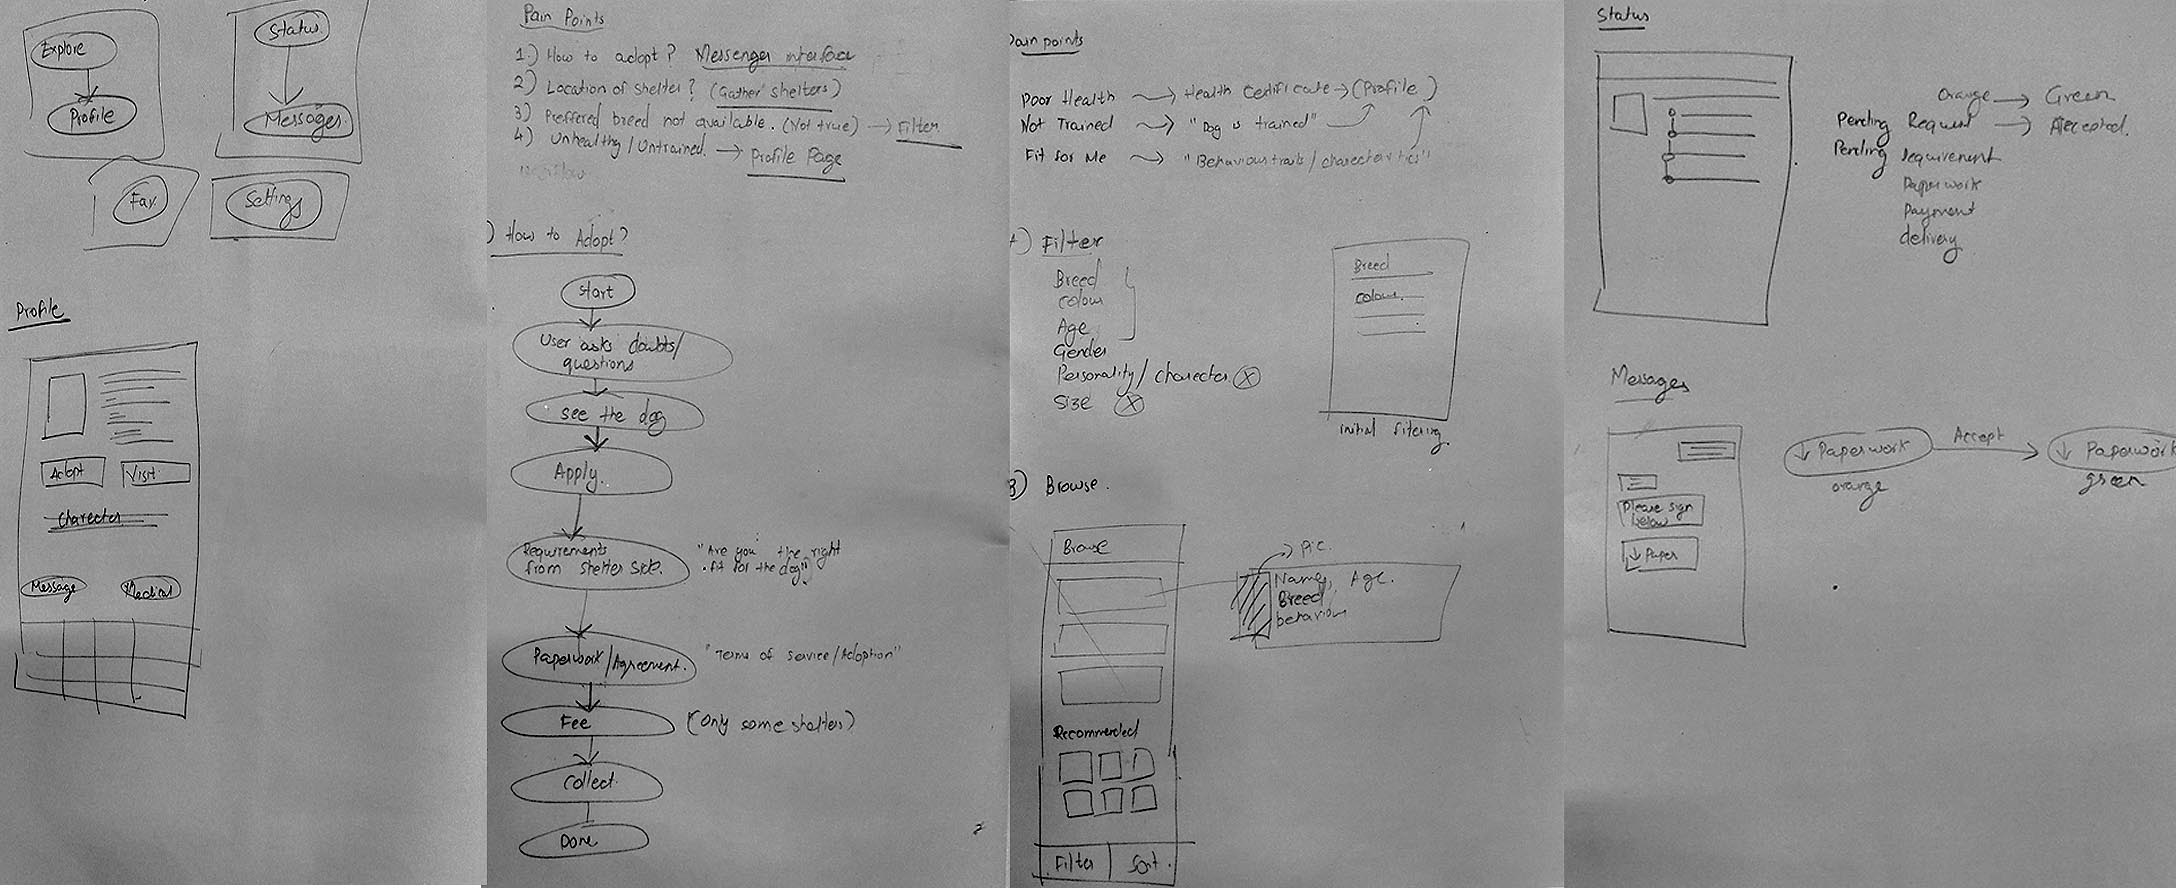 Explore
Profile
Status
Messages
Fav
Settings
Profile
Adopt
Visit
Charecter
Message
Medical
Pain Points
1.) How to adopt? Messenger interface
2) Location of shelter? (Gather shelters)
3) Preffered breed not available. (Not true) → Filter
4) Unhealthy/Untrained. → Profile Page
) How to Adopt?
Start
User asks doubts/
questions
See the dog
Apply.
Requirements
from shelter side.
"Are you the right
fit for the dog"
Paperwork/Agreement.
"Terms of service/Adoption"
Fee
(Only some shelters)
Collect
Done
Pain points
Poor Health → Health Certificate → (Profile)
Not Trained → "Dog is trained"
Fit for Me → "Behaviour traits/charecteristics"
) Filter
Breed
Colour
Age
Gender
Personality/charecter (X)
Size (X)
Breed
colour
initial filtering
3) Browse.
Browse
Recommended
Filter
Sort.
Pic.
Name, Age.
Breed
behaviour
Status
Orange → Green
Pending Request → Accepted.
Pending requirement
Paperwork
Payment
delivery
Messages
Please sign
below
↓ Paper
↓ Paperwork
orange
Accept
↓ Paperwork
green